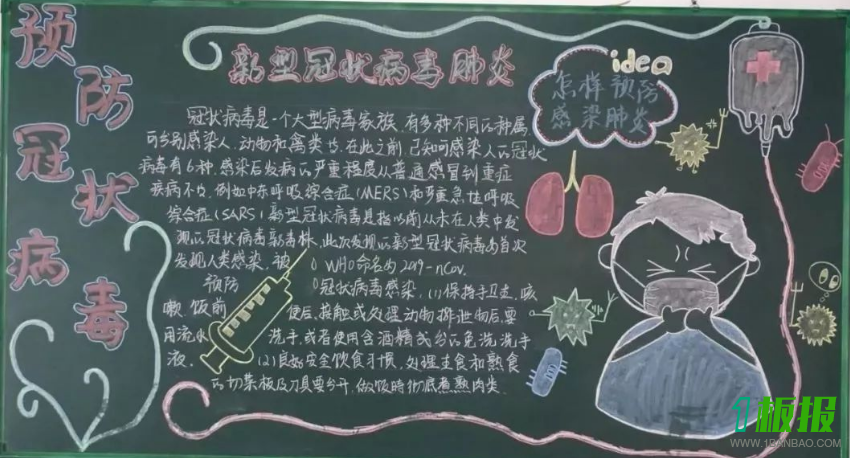 预防冠状病毒
新型冠状病毒肺炎
idea
怎样预防
感染肺炎
冠状病毒是一个大型病毒家族,有多种不同的种属,
可分别感染人、动物和禽类等。在此之前,已知可感染人的冠状
病毒有6种,感染后发病的严重程度从普通感冒到重症
疾病不等,例如中东呼吸综合症(MERS)和严重急性呼吸
综合症(SARS)新型冠状病毒是指以前从未在人类中发
现的冠状病毒新毒株,此次发现的新型冠状病毒为首次
发现人类感染,被 WHO命名为2019-nCoV.
预防 冠状病毒感染,(1)保持手卫生,咳
嗽,饭前 便后,接触或处理动物排泄物后,要
用流水 洗手,或者使用含酒精成分的免洗洗手
液. (2)良好安全饮食习惯,处理生食和熟食
的切菜板及刀具要分开,做饭时彻底煮熟肉类.
1板报
WWW.1BANBAO.COM